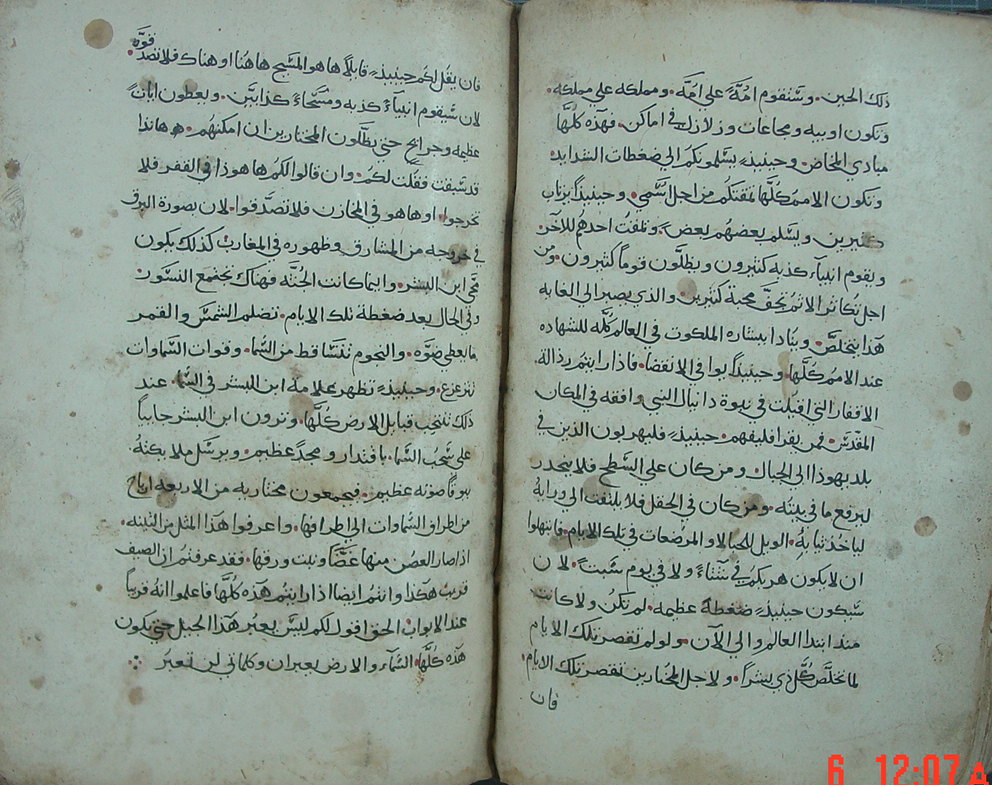 ذلك الحين. وستقوم امّةً على امّه. ومملكه علي مملكه.
وتكون اوبيه ومجاعات وزلازل في اماكن. فهذه كلّها
مبادي المخاض. وحينيذٍ يسلمونكم الي ضغطات الشدايد.
وتكون الامم كلّها تمقتكم من اجل اسمي. وحينيذاً يرتاب
كثيرين. ويسلم بعضهم بعض. وتمقت احدهم للآخر.
ويقوم انبياء كذبه كثيرون ويظلّون قوماً كثيرون. ومن
اجل تكاثر الاثم تجفّ محبة كثيرين. والذي يصبر الي الغايه
هذا يتخلّص. وينادا ببشاره الملكوت في العالم كلّه للشهاده
عند الامم كلّها. وحينيذاً يوافي الانقضا. فاذا رايتم رذاله
الاقفار التي اقبلت في نبوة دانيال النبي وافقه في المكان
المقدّس. فمن يقرا فليفهم. حينيذٍ فليهربون الذين في
بلد يهوذا الي الجبال. ومن كان علي السّطح فلا ينحدر
ليرفع ما في بيته. ومن كان في الحقل فلا يلتفت الي ورايهُ
لياخذ ثيابهُ. الويل للحبالا والمرضعات في تلك الايام. فابتهلوا
ان لا يكون هربكم في شتاءً ولا في يوم سبتً. لان
سيكون حينيذٍ ضغطة عظيمه. لم تكن ولا كانت
منذ ابتدا العالم والي الآن. ولو لم تقصر تلك الايام
لما تخلّص كلّ ذي بشراً. ولاجل المختارين تقصر تلك الايام.
فان
فان يقُل لكم حينيذٍ قايلاً ها هو المسّيح هاهُنا او هناك فلا تصدّقوه.
لان سيقوم انبياءً كذبه ومسّحاءً كذابين. ويعطون اياتً
عظيمه وجرايح حتي يظلّون المختارين ان امكنهُم. هوهاندا
قد سبقت فقُلت لكم. وان قالوا لكُم ها هوذا في القفر فلا
تخرجوا. او ها هو في المخازن فلا تصدّقوا. لان بصورة البرق
في خروجه من المشارق وظهوره في المغارب كذلك يكون
مجي ابن البشر. واينما كانت الجُثّه فهناك تجتمع النسور.
وفي الحال بعد ضغطة تلك الايام. تضلم الشمسّ والقمر
ما يعطي ضوّه. والنجوم تتسّاقط من السّما. وقوات السّماوات
تتزعزع. وحينيذٍ تظهر علامة ابن البشر في السّما. عند
ذلك تنتحب قبايل الارض كُلّها. وترون ابن البشر جايياً
على سّحُب السّما. باقتدار ومجدً عظيم. ويرسّل ملايكتهُ
ببوقاً صوته عظيم. فيجمعون مختاريه من الاربعه ارياح
من اطراف السّماوات الي اطرافها. واعرفوا هذا المثل من التّينه.
اذا صار الغصن منها غضّاً ونبت ورقها. فقد عرفتم ان الصيف
قريبً هكذا وانتم ايضا اذا رايتُم هذه كُلّها فاعلموا انهُ قريباً
عند الابواب. الحق اقول لكم ليسّ يعبُر هذا الجيل حتي يكون
هذه كُلّها. السّماء والارض يعبران وكلماتي لن تعبُر
6 12:07 A